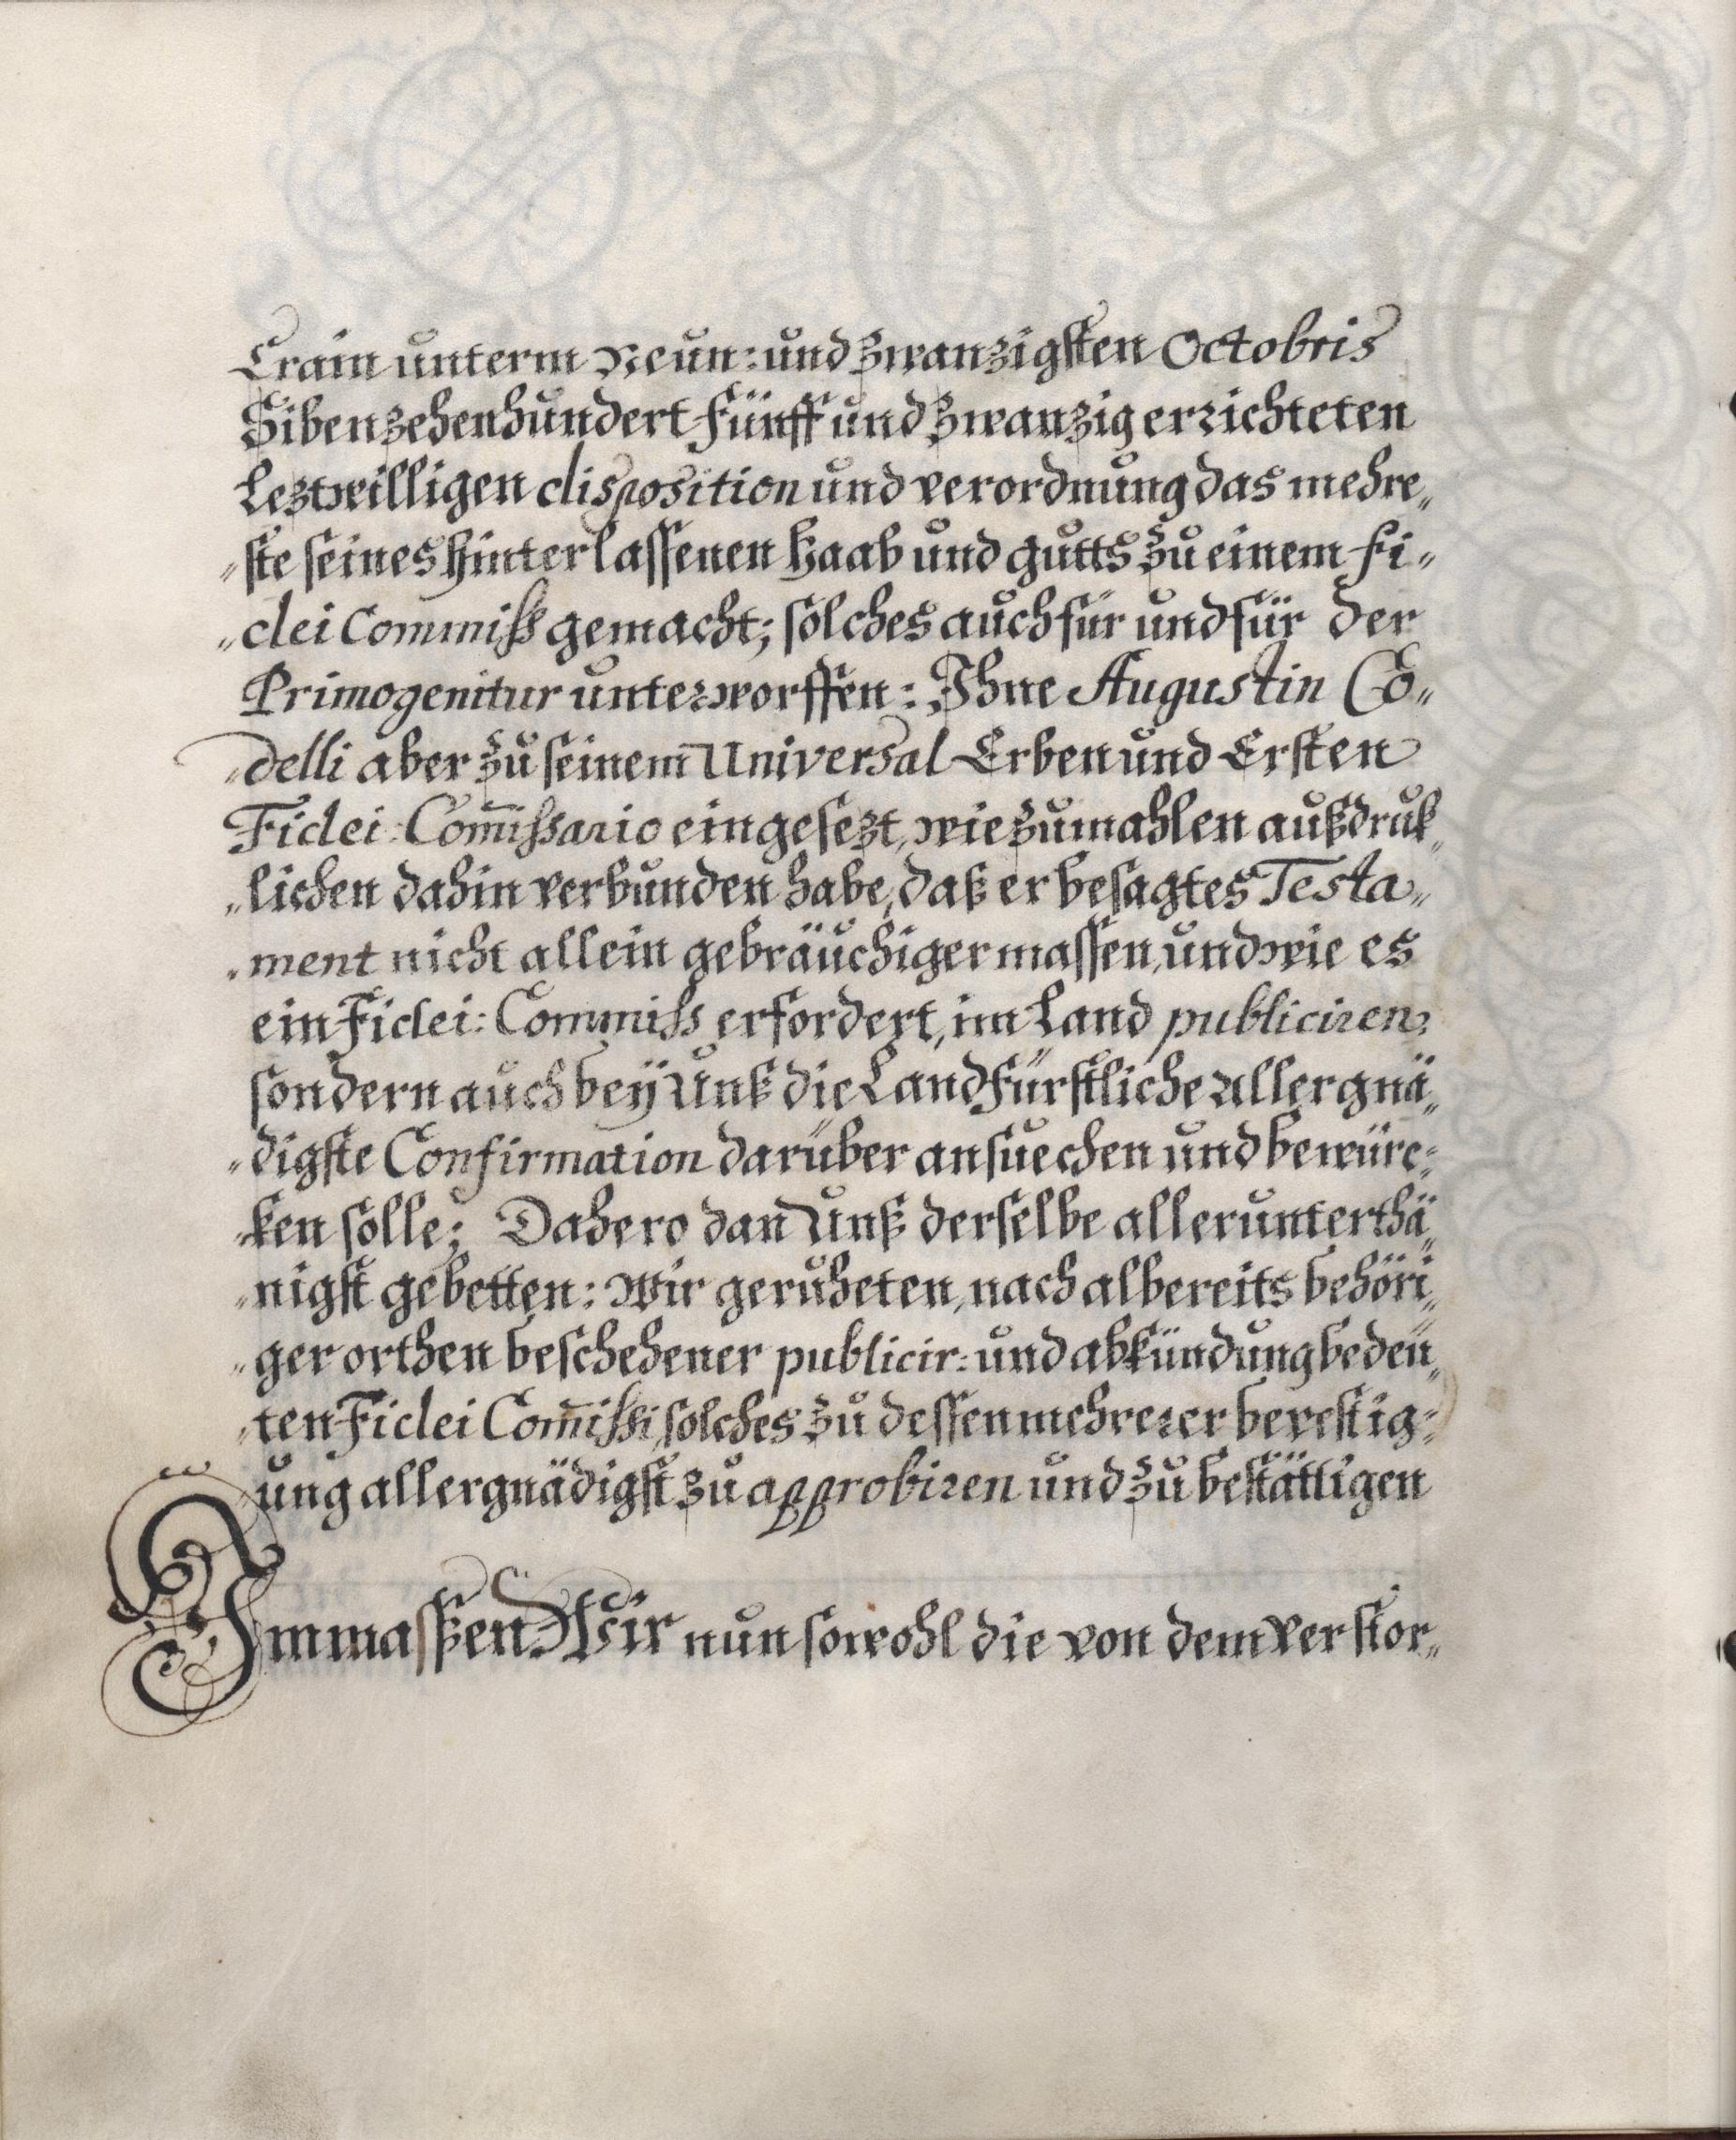 Crain unterm Neun: und zwanzigsten Octobris
Sibenzehenhundert Fünff und zwanzig errichteten
Leztwilligen disposition und verordnung das mehre„
„ste seines hinterlassenen Haab und gutts zu einem Fi„
„dei Commiß gemacht; solches auch für und für der
Primogenitur unterworffen: Ihne Augustin Co„
„delli aber zu seinem Universal Erben und Ersten
Fidei: Com̄issario eingesezt, wie zumahlen außdruk„
„lichen dahin verbunden habe, daß er besagtes Testa„
„ment nicht allein gebräuchiger massen, und wie es
ein Fidei: Commiss erfordert, im Land publiciren,
sondern auch bey Unß die Landfürstliche Allergnä„
„digste Confirmation darüber ansuechen und bewürc:
„ken solle; Dahero dan Unß derselbe allerunterthä„
„nigst gebetten: Wir geruheten, nach albereits behöri„
„ger orthen beschehener publicir: und abkündung bedeü„
„ten Fidei Com̄issi, solches zu dessen mehrerer bevestig:
„ung allergnädigst zu approbiren und zu bestättigen
Immassen Wir nun sowohl die von dem verstor„